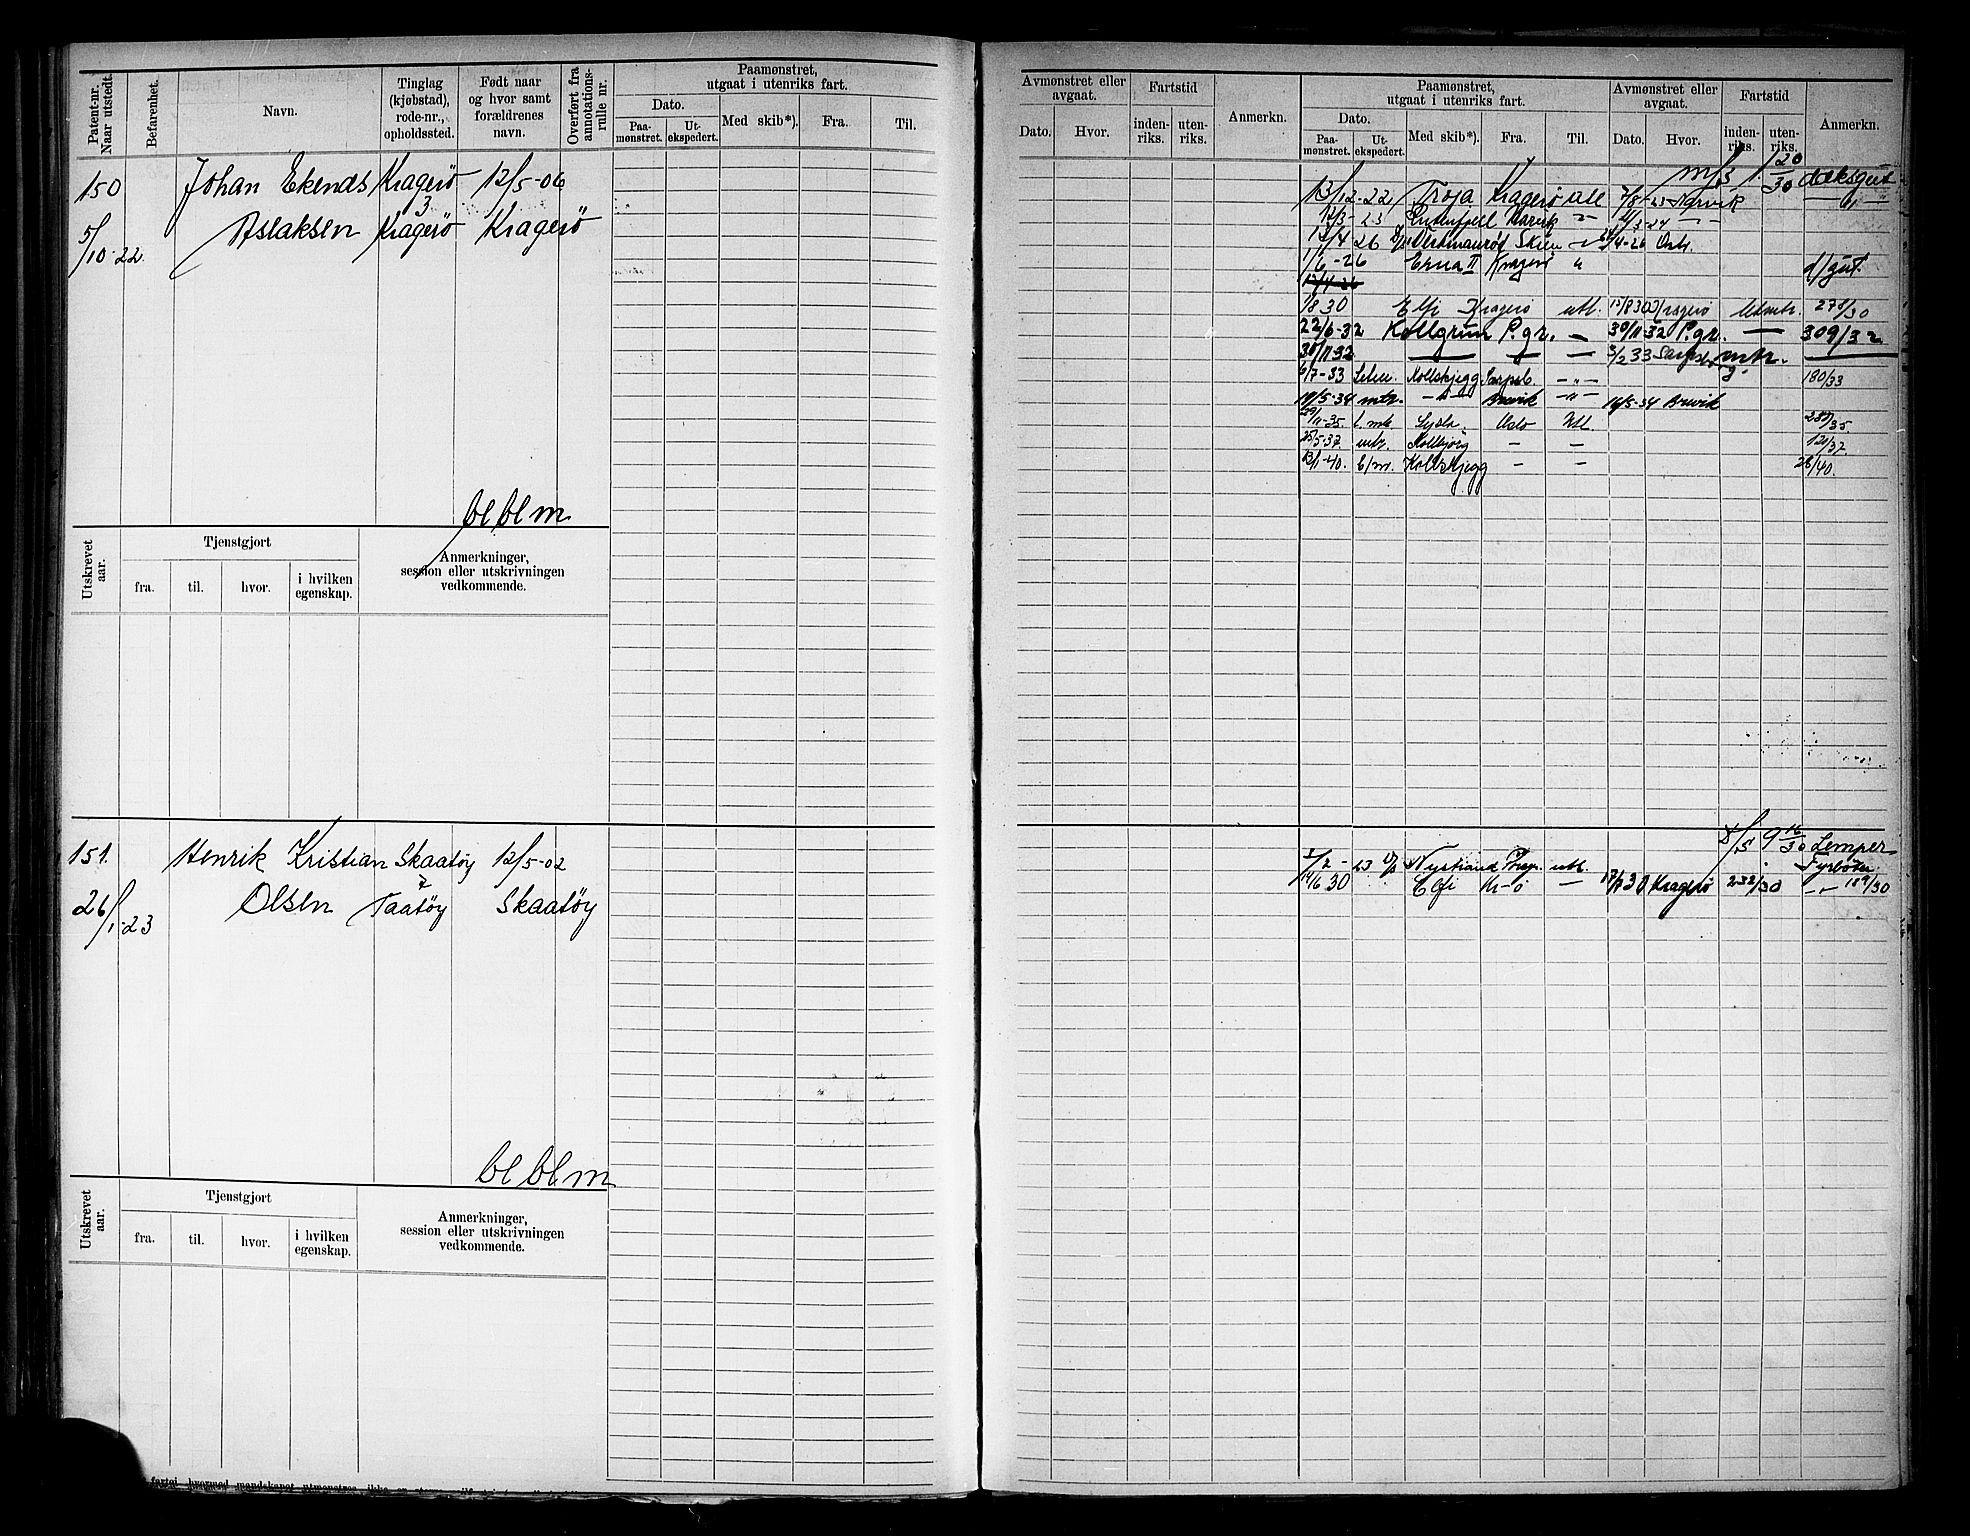 Patent-nr. Naar utstedt. Befarenhet. Navn. Tinglag (kjøbstad), rode-nr., opholdssted. Født naar og hvor samt forældrenes navn. Overført fra annotations-rulle nr.
Paamønstret, utgaat i utenriks fart.
Dato. Paa-mønstret. Ut-ekspedert. Med skib*). Fra. Til.
150 Johan Ekenäs Kragerø 12/5-06
3
5/10-22 Aslaksen Kragerø Kragerø
bl bl m
Utskrevet aar. Tjenstgjort fra. til. hvor. i hvilken egenskap.
Anmerkninger, session eller utskrivningen vedkommende.
151. Henrik Kristian Skaatøy 12/5-02
7
26/1-23 Olsen Taatøy Skaatøy
bl bl m
Utskrevet aar. Tjenstgjort fra. til. hvor. i hvilken egenskap.
Anmerkninger, session eller utskrivningen vedkommende.
Avmønstret eller avgaat. Dato. Hvor. Fartstid inden-riks. uten-riks. Anmerkn.
Paamønstret, utgaat i utenriks fart.
Dato. Paa-mønstret. Ut-ekspedert. Med skib*). Fra. Til.
Avmønstret eller avgaat. Dato. Hvor. Fartstid inden-riks. uten-riks. Anmerkn.
20/30 dæksgut
13/12-22 Troja Kragerø 7/8-23 Narvik
12/3-23 Narvik
12/4 26 Skien 4-26
1/6-26 Erna II Kragerø " d/gut.
12/4-26
1/8 30 Elfi Kragerø utl. Kragerø 278/30
22/6-32 Kollgrim P.gr. — 30/11 32 P.gr. — 309/32
30/11 32 — — — 3/2 33 Sarpsborg mtr.
6/7-33 Kollskjegg Sarpsb. — " — 180/33
14/5-34 mtr. — " — Brevik — " — 16/5-34 Brevik
29/11-35. l. mtr. Oslo Utl
25/5-37. mtr. Kollbjørg — — 121/37
13/1-40. b/m. Kollskjegg — — 26/40.
9 16/30 Lemper
23 Nystrand utl. Fyrbøter
14/6 30 Elfi Kr-ø — 17/7 30 Kragerø 232/30 — " — 189/30